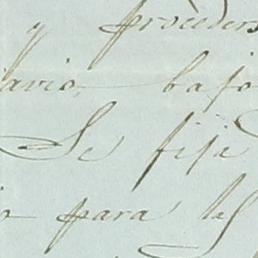 y proceders
ario, bajo
Se fije
o para las